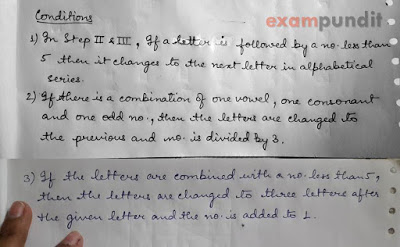 exampundit
Conditions
1) In Step II & III, If a letter is followed by a no. less than
5 then it changes to the next letter in alphabetical
series.
2) If there is a combination of one vowel, one consonant
and one odd no., then the letters are changed to
the previous and no. is divided by 3.
3) If the letters are combined with a no. less than 5,
then the letters are changed to three letters after
the given letter and the no. is added to 1.